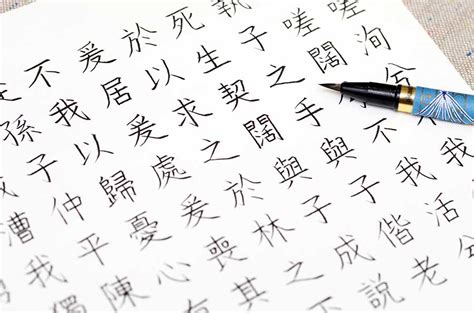 嗟洵兮不我
嗟闊兮不我活兮
執子之手與子偕老
死生契闊與子成說
於以求之於林之
爰居爰處爰喪其
不我以歸憂心有
孫子仲平陳
漕我獨